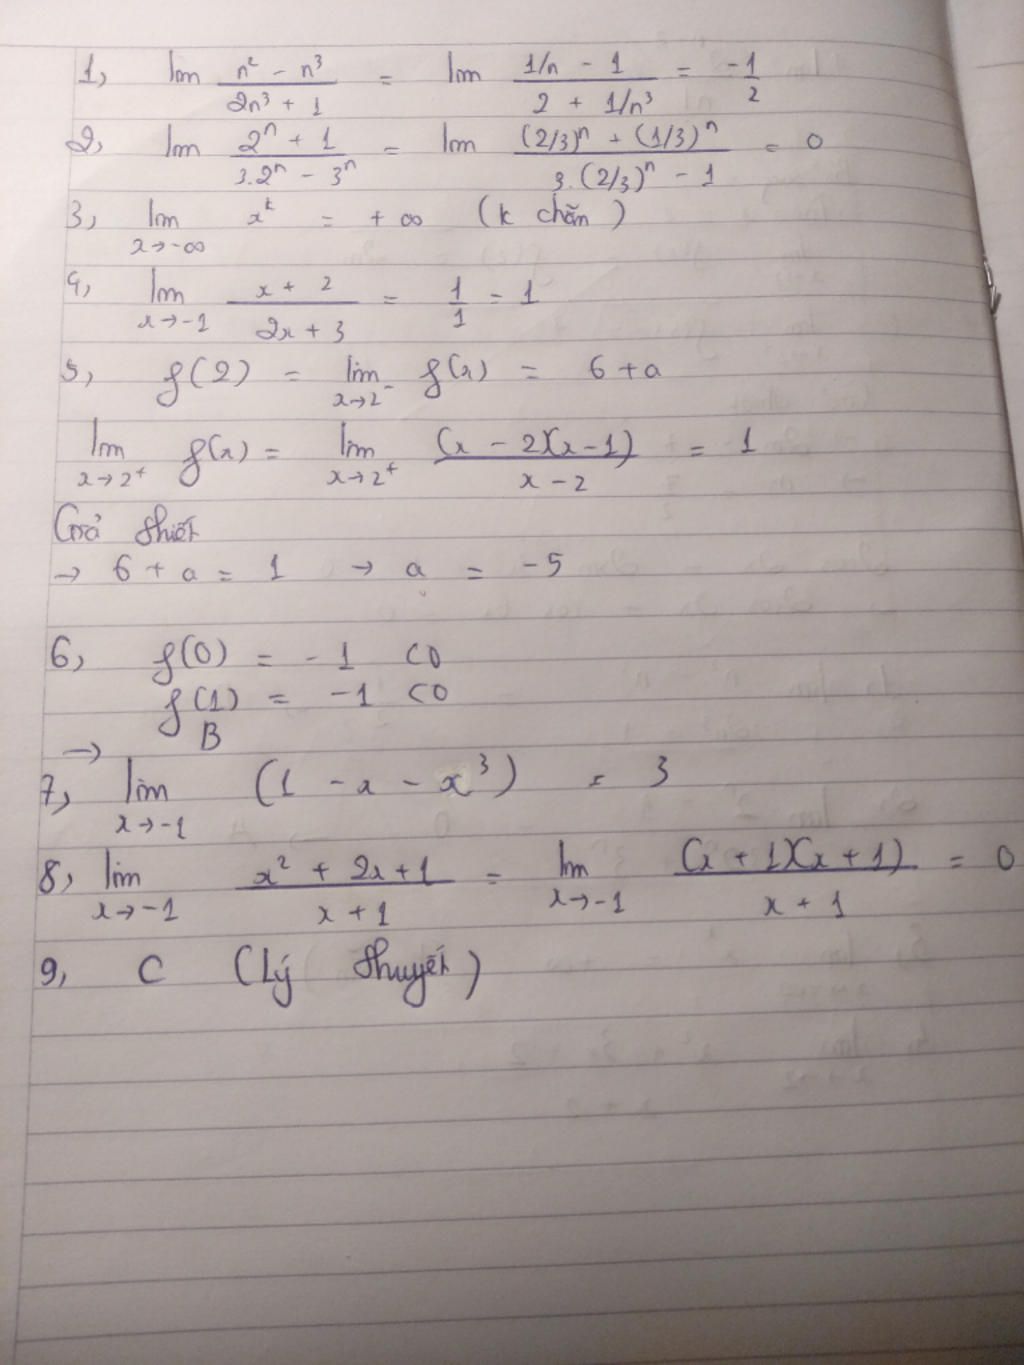 1, lim (n² - n³)/(2n³ + 1) = lim (1/n - 1)/(2 + 1/n³) = -1/2
2, lim (2ⁿ + 1)/(3.2ⁿ - 3ⁿ) = lim ((2/3)ⁿ + (1/3)ⁿ)/(3.(2/3)ⁿ - 1) = 0
3, lim x→-∞ xᵏ = +∞ (k chẵn)
4, lim x→-1 (x + 2)/(2x + 3) = 1/1 = 1
5, f(2) = lim x→2⁻ f(x) = 6 + a
lim x→2⁺ f(x) = lim x→2⁺ (x - 2)(x - 1)/(x - 2) = 1
Giả thiết
→ 6 + a = 1 → a = -5
6, f(0) = -1 <0
f(1) = -1 <0
→ B
7, lim x→-1 (1 - x - x³) = 3
8, lim x→-1 (x² + 2x + 1)/(x + 1) = lim x→-1 (x + 1)(x + 1)/(x + 1) = 0
9, C (Lý thuyết)